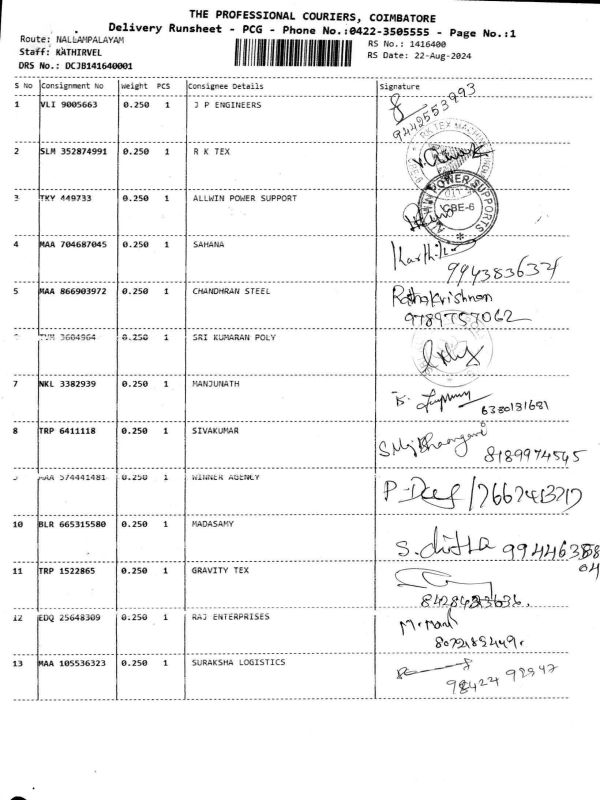 THE PROFESSIONAL COURIERS, COIMBATORE
Delivery Runsheet - PCG - Phone No.:0422-3505555 - Page No.:1
Route: NALLAMPALAYAM
RS No.: 1416400
Staff: KATHIRVEL
RS Date: 22-Aug-2024
DRS No.: DCJB141640001
S No Consignment No Weight PCS Consignee Details Signature
1 VLI 9005663 0.250 1 J P ENGINEERS
9442553993
2 SLM 352874991 0.250 1 R K TEX
3 TKY 449733 0.250 1 ALLWIN POWER SUPPORT
POWER SUPPORTS
CBE-6
4 MAA 704687045 0.250 1 SAHANA Karthik
5 MAA 866903972 0.250 1 CHANDHRAN STEEL Rathakrishnan
9789757062
TVM 3604964 0.250 1 SRI KUMARAN POLY
7 NKL 3382939 0.250 1 MANJUNATH
6380131681
8 TRP 6411118 0.250 1 SIVAKUMAR
8189974545
MAA 574441481 0.250 1 WINNER AGENCY
10 BLR 665315580 0.250 1 MADASAMY
11 TRP 1522865 0.250 1 GRAVITY TEX
12 EDQ 25648309 0.250 1 RAJ ENTERPRISES
13 MAA 105536323 0.250 1 SURAKSHA LOGISTICS